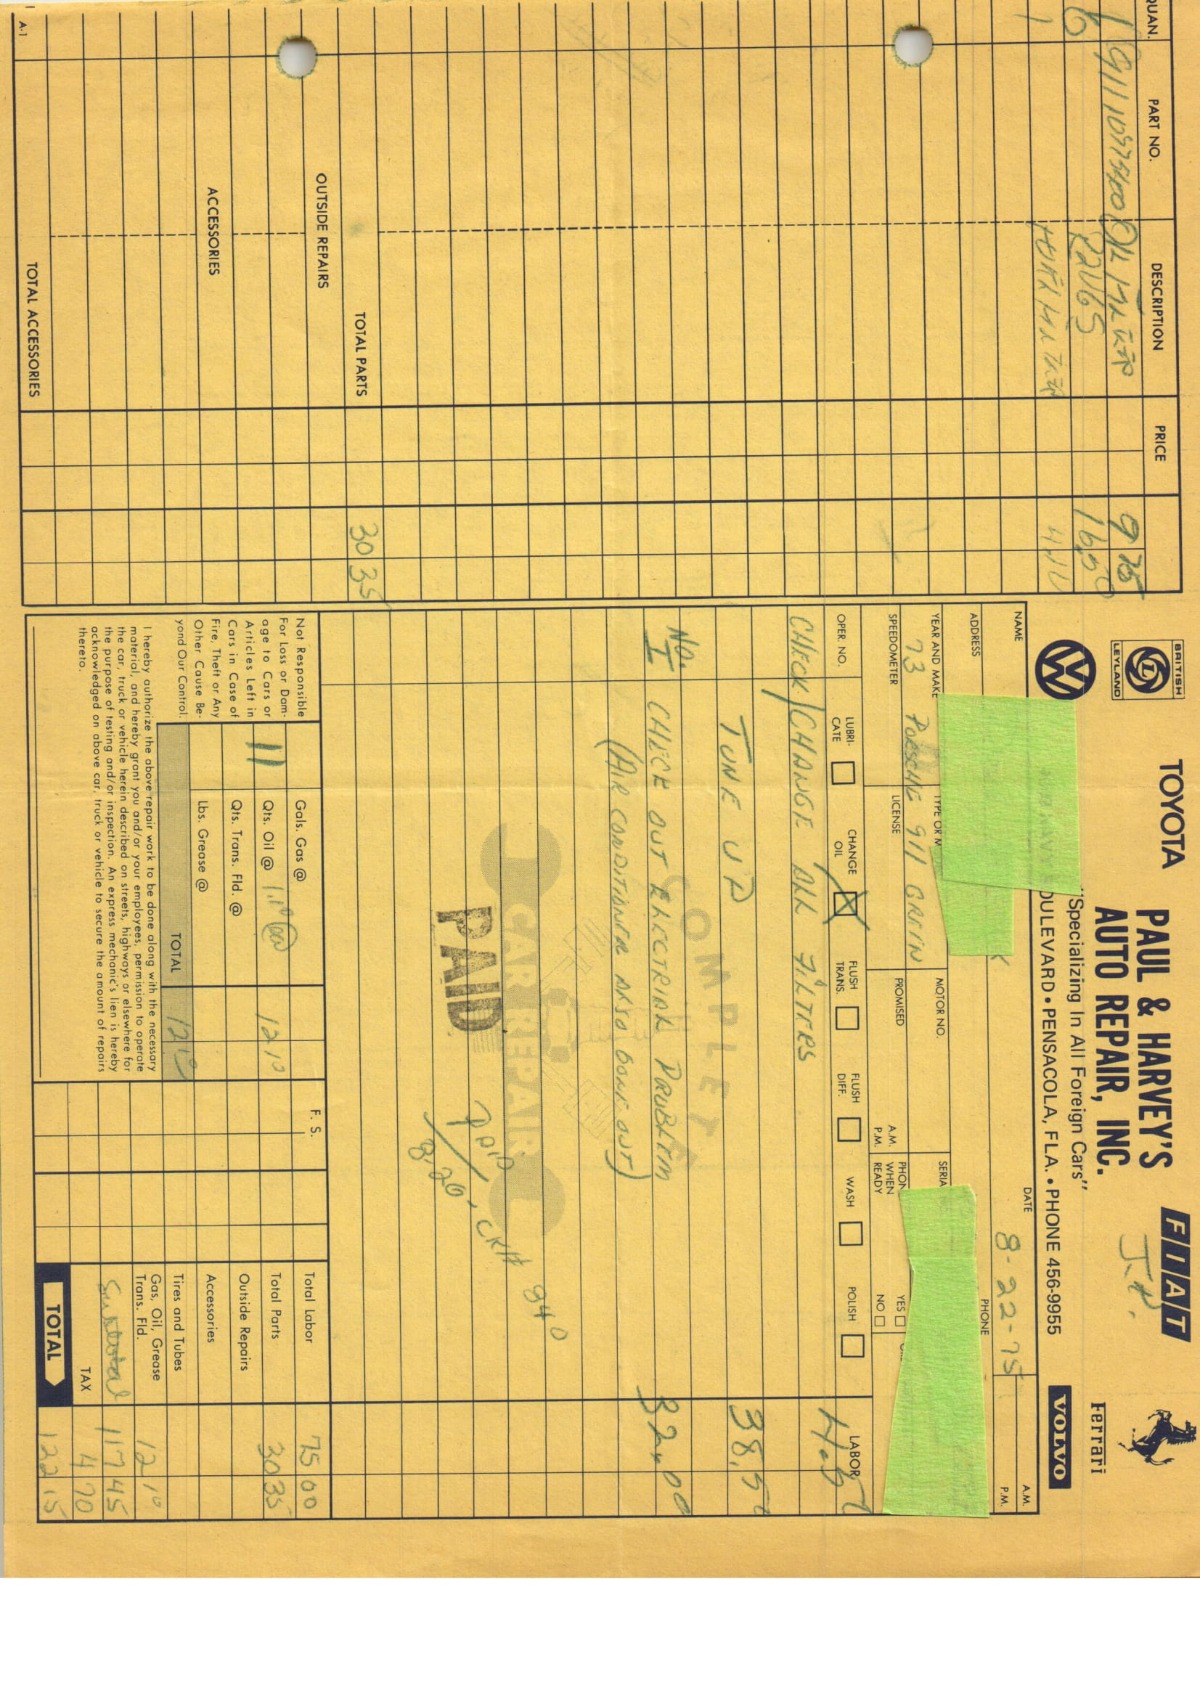 QUAN. PART NO. DESCRIPTION PRICE
1 9 75
6 R2V6S 16.50
1
TOTAL PARTS 30 35
OUTSIDE REPAIRS
ACCESSORIES
TOTAL ACCESSORIES
A-1
BRITISH
LEYLAND
TOYOTA
PAUL & HARVEY'S
AUTO REPAIR, INC.
FIAT
J.P.
Ferrari
"Specializing In All Foreign Cars"
VW
OULEVARD • PENSACOLA, FLA. • PHONE 456-9955
VOLVO
NAME
DATE 8-22-75 A.M.
P.M.
ADDRESS
PHONE
YEAR AND MAKE TYPE OR M MOTOR NO. SERIA
73 PORSCHE 911 GREEN
SPEEDOMETER LICENSE PROMISED A.M.
P.M. PHON
WHEN
READY YES NO
OPER. NO. LUBRI-
CATE CHANGE
OIL X FLUSH
TRANS. FLUSH
DIFF. WASH POLISH LABOR
CHECK/CHANGE OIL FILTERS 4.50
TUNE UP 38.50
COMPLETE
No. 1 CHECK OUT ELECTRICAL PROBLEM 32.00
(AIR CONDITIONER ALSO GONE OUT)
CAR REPAIR
PAID
PAID CK# 940
8/26
Not Responsible
For Loss or Dam-
age to Cars or
Articles Left in
Cars in Case of
Fire, Theft or Any
Other Cause Be-
yond Our Control.
Gals. Gas @
11 Qts. Oil @ 1.10 12 10
Qts. Trans. Fld. @
Lbs. Grease @
TOTAL 12 10
I hereby authorize the above repair work to be done along with the necessary
material, and hereby grant you and/or your employees, permission to operate
the car, truck or vehicle herein described on streets, highways or elsewhere for
the purpose of testing and/or inspection. An express mechanic's lien is hereby
acknowledged on above car, truck or vehicle to secure the amount of repairs
thereto.
F. S.
Total Labor 75 00
Total Parts 30 35
Outside Repairs
Accessories
Tires and Tubes
Gas, Oil, Grease
Trans. Fld. 12 10
Subtotal 117 45
TAX 4 70
TOTAL 122 15